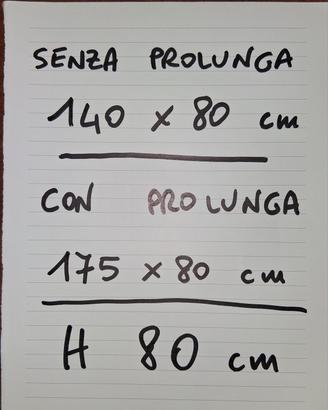 SENZA PROLUNGA
140 x 80 cm
CON PROLUNGA
175 x 80 cm
H 80 cm